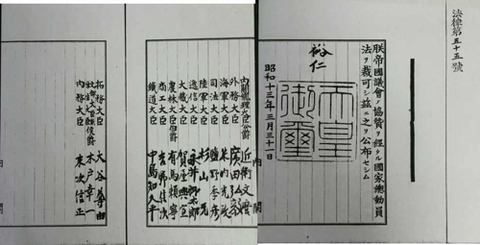 法律第五十五號
朕帝國議會ノ協贊ヲ經タル國家總動員
法ヲ裁可シ玆ニ之ヲ公布セシム
裕仁
天皇
御璽
昭和十三年三月三十一日
內閣
內閣總理大臣公爵 近衞文麿
外務大臣 廣田弘毅
海軍大臣 米內光政
司法大臣 鹽野季彥
陸軍大臣 杉山元
遞信大臣 永井柳太郎
大藏大臣 賀屋興宣
農林大臣伯爵 有馬賴寧
商工大臣 吉野信次
鐵道大臣 中島知久平
內閣
拓務大臣 大谷尊由
厚生大臣侯爵 木戶幸一
內務大臣 末次信正
內閣